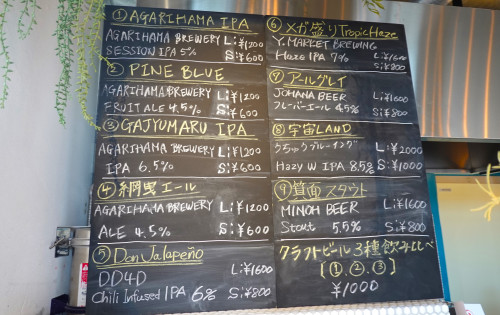 ① AGARIHAMA IPA
AGARIHAMA BREWERY L:¥1200
SESSION IPA 5% S:¥600
② PINE BLUE
AGARIHAMA BREWERY L:¥1200
FRUIT ALE 4.5% S:¥600
③ GAJYUMARU IPA
AGARIHAMA BREWERY L:¥1200
IPA 6.5% S:¥600
④ 綱曳エール
AGARIHAMA BREWERY L:¥1200
ALE 4.5% S:¥600
⑤ Don Jalapeño
DD4D L:¥1600
Chili Infused IPA 6% S:¥800
⑥ メガ盛りTropic Haze
Y.MARKET BREWING L:¥1600
Haze IPA 7% S:¥800
⑦ アールグレイ
JOHANA BEER L:¥1600
フレーバーエール 4.5% S:¥800
⑧ 宇宙LAND
うちゅうブルーイング L:¥2000
Hazy W IPA 8.5% S:¥1000
⑨ 箕面スタウト
MINOH BEER L:¥1600
Stout 5.5% S:¥800
クラフトビール3種飲み比べ
[①.②.③]
¥1000